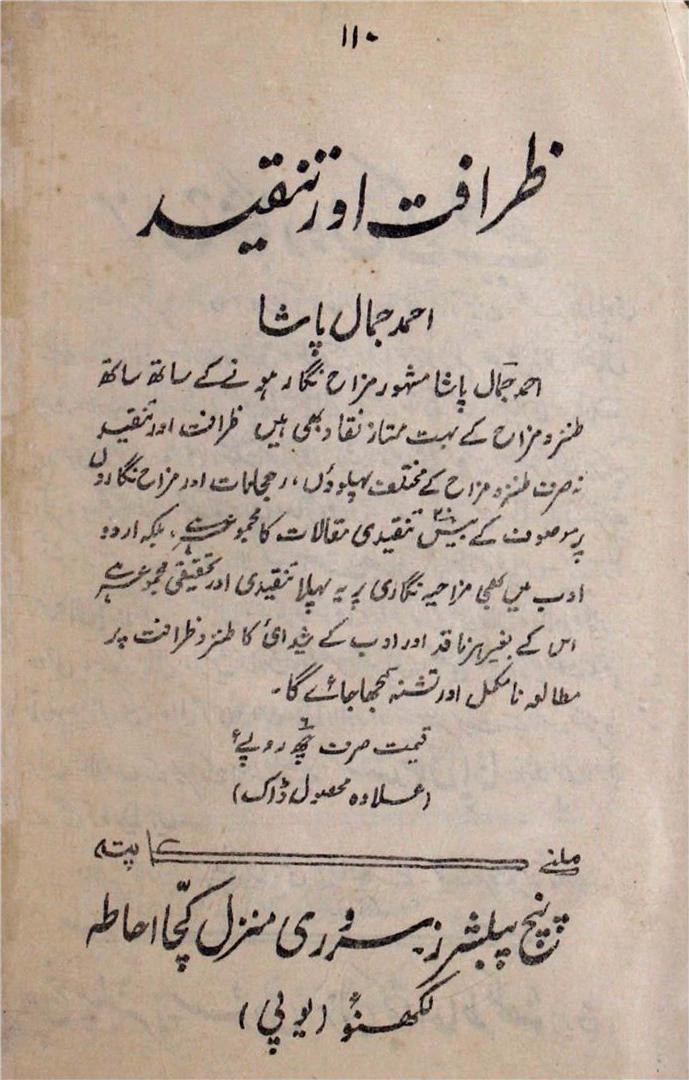 ۱۱۰
ظرافت اور تنقید
احمد جمال پاشا
احمد جمال پاشا مشہور مزاح نگار ہونے کے ساتھ ساتھ
طنز و مزاح کے بہت ممتاز نقاد بھی ہیں ظرافت اور تنقید
نہ صرف طنز و مزاح کے مختلف پہلوؤں، رجحانات اور مزاح نگاروں
پر موصوف کے بیس ۲۰ تنقیدی مقالات کا مجموعہ ہے، بلکہ اردو
ادب میں کبھی مزاحیہ نگاری پر یہ پہلا تنقیدی اور تحقیقی مجموعہ ہے
اس کے بغیر ہر ناقد اور ادب کے شیدائی کا طنز و ظرافت پر
مطالعہ نامکمل اور تشنہ سمجھا جائے گا۔
قیمت صرف چھ ۶ روپیے
(علاوہ محصول ڈاک)
ملنے کا پتہ
پنچ پبلشرز سروری منزل کچّا احاطہ
لکھنؤ (یوپی)